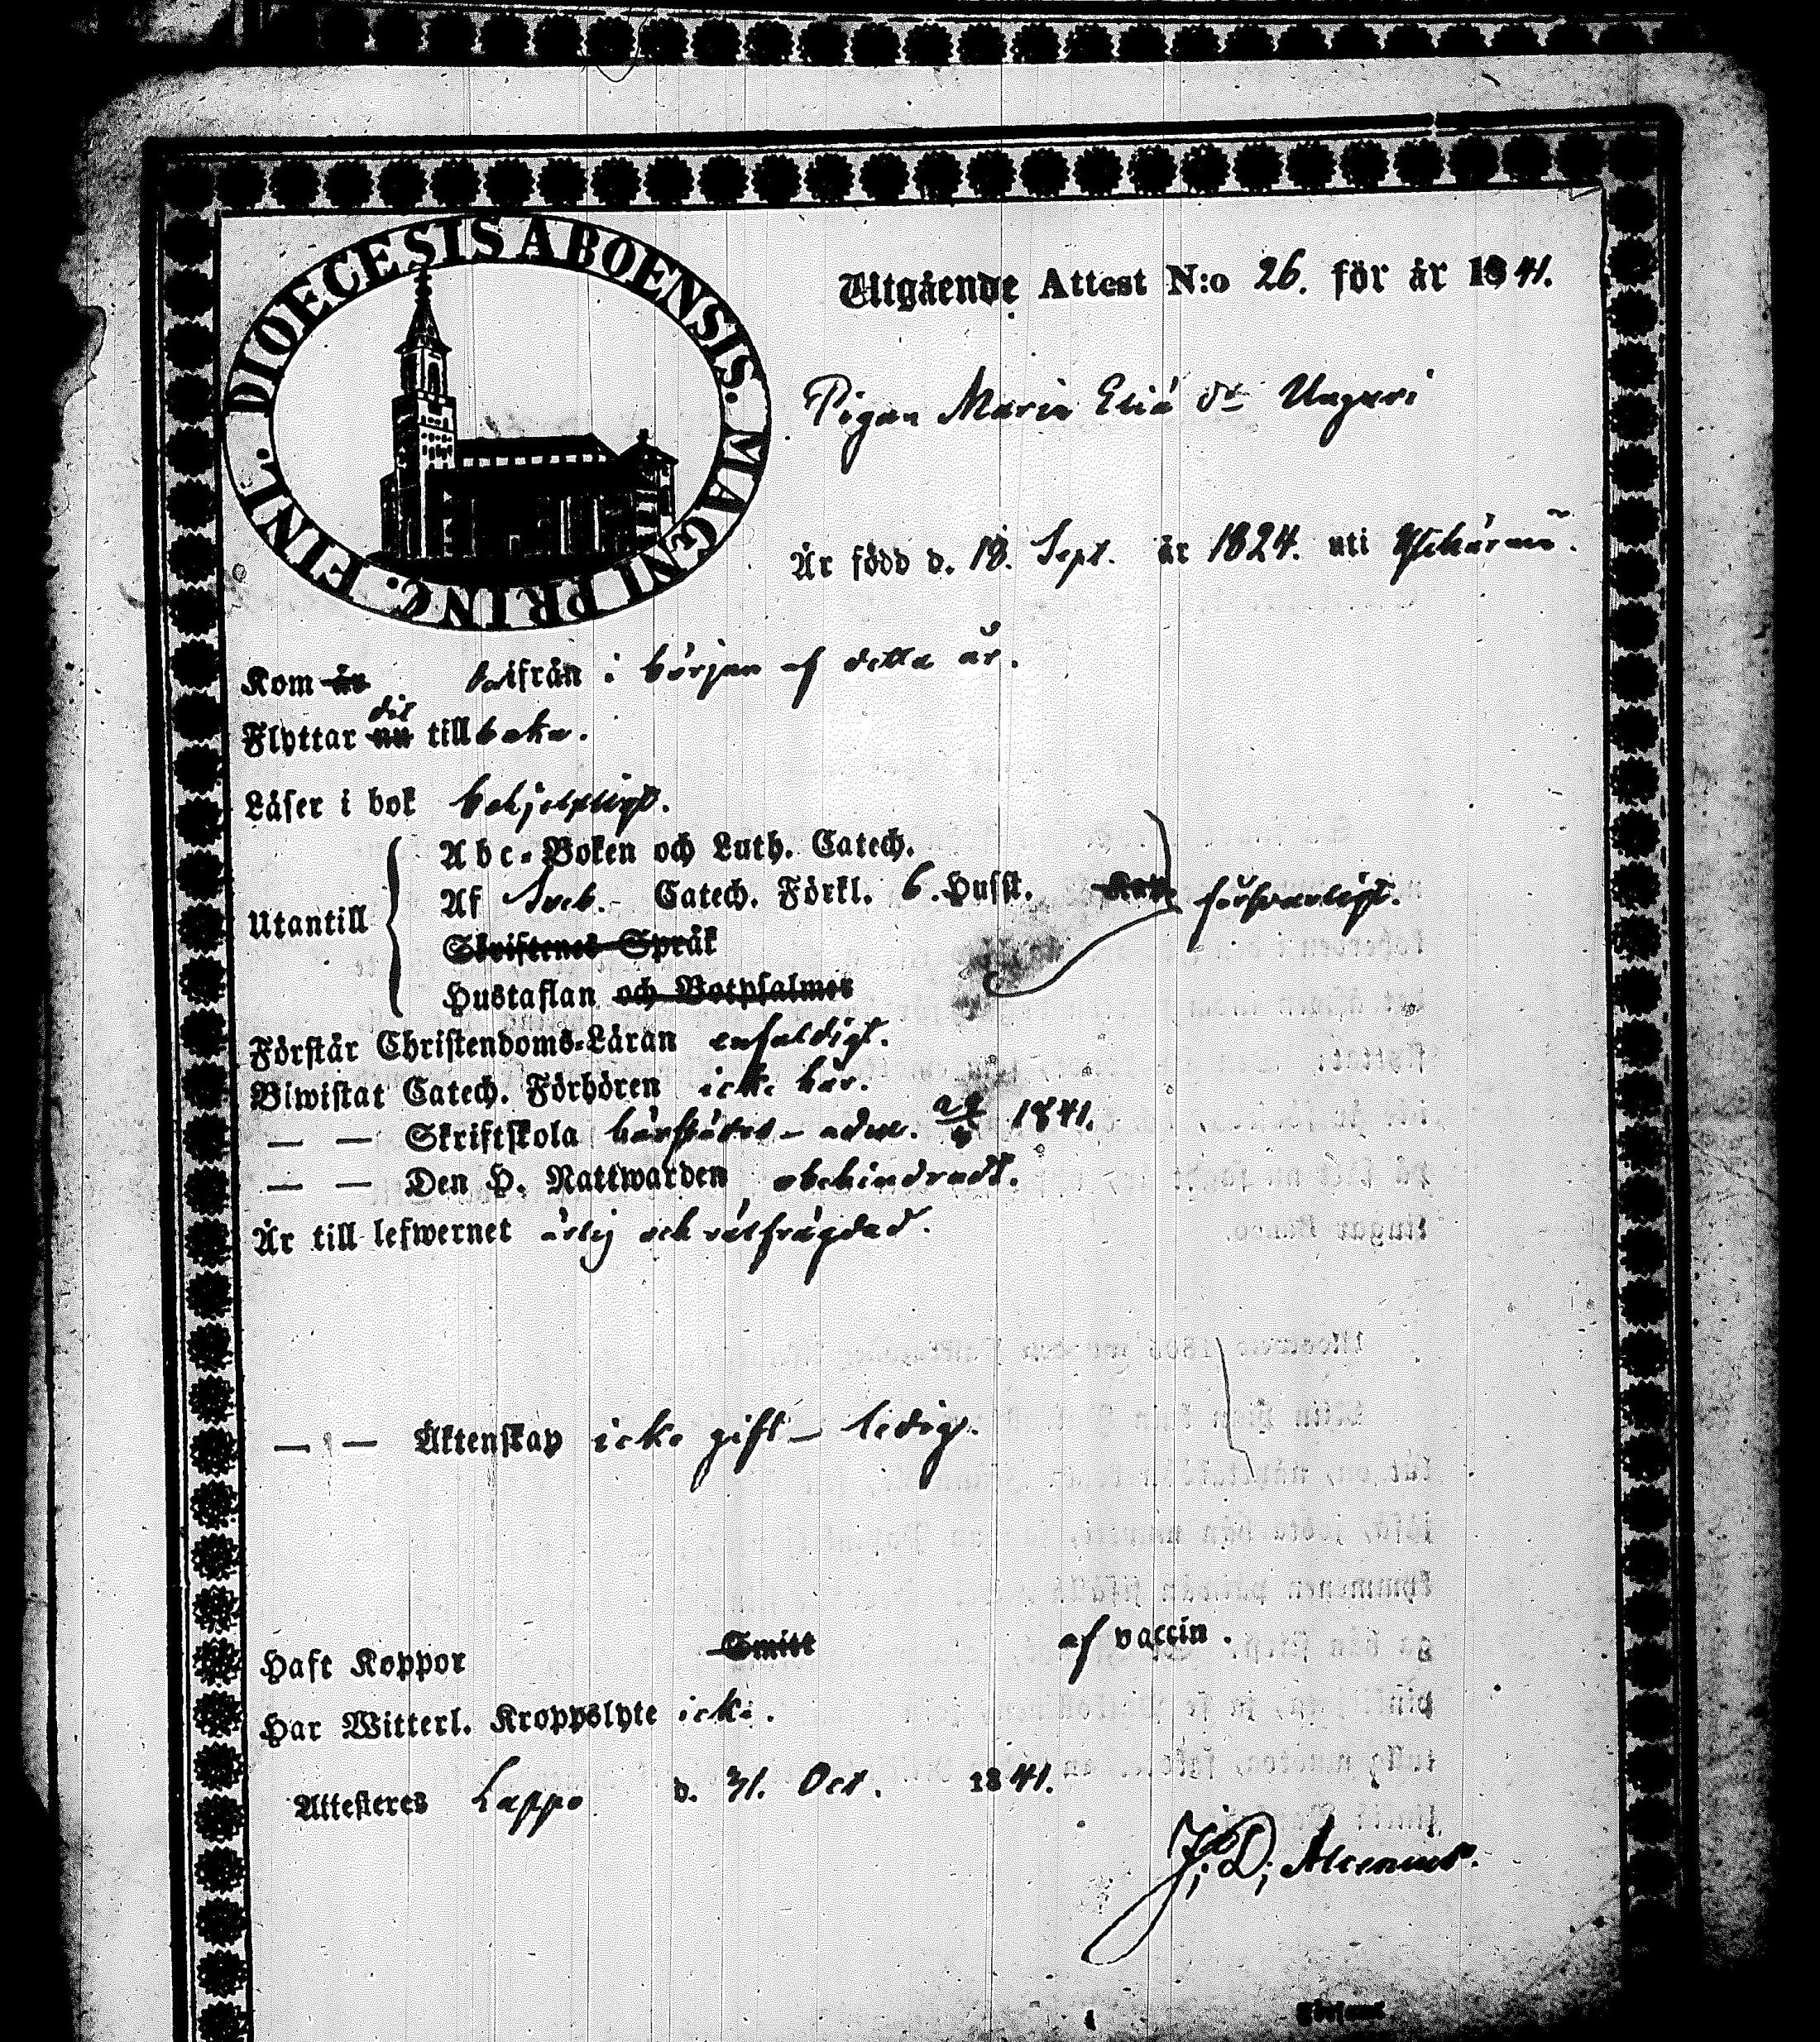 DIOECESIS ABOENSIS. MAGNI PRINC. FINL.
Utgående Attest N:o 26. för år 1841.
Pigan Maria Eliæ dr Ungari
Är född d. 18. Sept. år 1824. uti Ylihärmä.
Kom år därifrån i början af detta år.
Flyttar nu dit tillbaka.
Läser i bok behjelpligt.
Utantill
Abc-Boken och Luth. Catech.
Af Sveb. Catech. Förkl. 6. Husst. försvarligt.
Skriftenes Språk
Hustaflan och Botpsalmer
Förstår Christendoms-Läran enfaldigt.
Biwistat Catech. Förhören icke här.
— — Skriftskola härstädes – adm. 1841.
— — Den H. Nattwarden obehindradt.
Är till lefwernet ärlig och välfrägdad.
— — Äktenskap icke gift – ledig.
Haft Koppor Smitt af vaccin.
Har Witterl. Kroppslyte icke.
Attesteres Lappo d. 31. Oct. 1841.
J. D. Alcenius.